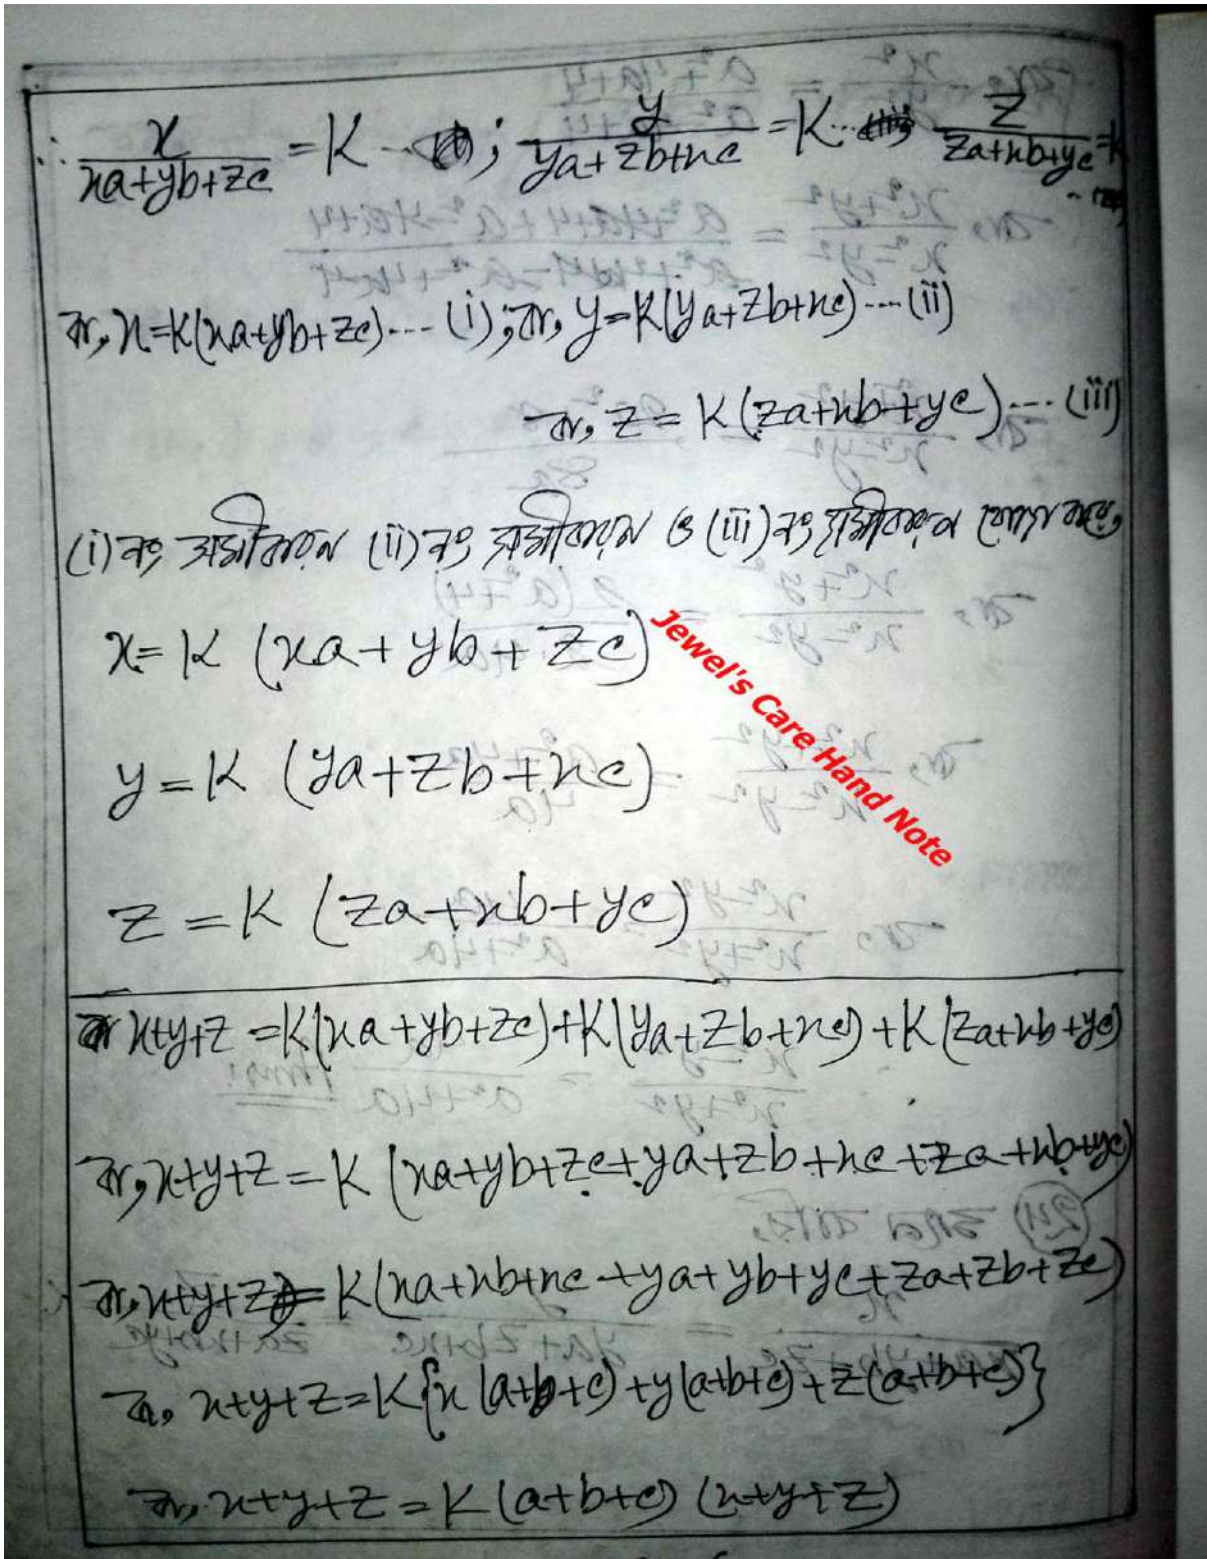 ∴ x/(xa+yb+zc) = K ; y/(ya+zb+xc) = K ... z/(za+xb+yc) = K
বা, x=K(xa+yb+zc)---- (i); বা, y=K(ya+zb+xc)----(ii)
বা, z = K(za+xb+yc)---- (iii)
(i)নং সমীকরন (ii)নং সমীকরন ও (iii)নং সমীকরন যোগ করে,
x= K (xa+yb+zc)
y=K (ya+zb+xc)
z=K (za+xb+yc)
Jewel's Care Hand Note
বা x+y+z =K(xa+yb+zc)+K(ya+zb+xc)+K(za+xb+yc)
বা, x+y+z=K (xa+yb+zc+ya+zb+xc+za+xb+yc)
বা, x+y+z=K(xa+xb+xc+ya+yb+yc+za+zb+zc)
বা, x+y+z=K{x(a+b+c)+y(a+b+c)+z(a+b+c)}
বা, x+y+z=K(a+b+c) (x+y+z)